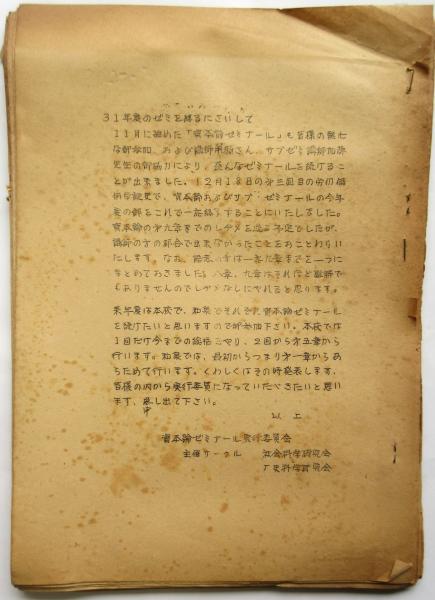 31年度のゼミを終るにさいして
11月に始めた「資本論ゼミナール」も皆様の熱心
な御参加、および講師 さん、サブゼミ講師加弥
先生の御協力により、 んなゼミナールを続けるこ
とが出来ました。12月18日の第三回目の労仂価
値学説史で、資本論およびサブ・ゼミナールの今年
度の部をこれで一応終 することにいたしました。
資本論の第九章までのレヂメを 予定でしたが、
講師の方の都合で出来なかったことをおことわりい
たします。なお、 は一 九章までを一つに
まとめておきました。八章、九章はそれほど難解で
ありませんのでレヂメなしにやれると思ります。
来年度は本校で、和泉でそれぞれ資本論ゼミナール
を続けたいと思いますので御参加下さい。本校では
1回だけ今までの総括 やり、2回から第五章から
行います。和泉では、最初からつまり第一章からあ
らためて行います。くわしくはその時発表します、
皆様の内から実行委員になっていたゞきたいと思い
ます、申し出て下さい。
以上
資本論ゼミナール実行委員会
主催サークル 社会科学研究会
歴史科学研究会